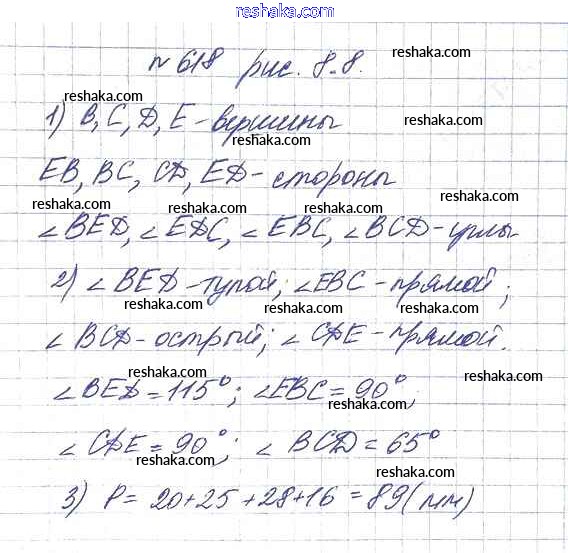 www.reshaka.com
№ 618 рис. 8.8.
reshaka.com
reshaka.com
1) B, C, D, E - вершины
reshaka.com
reshaka.com
EB, BC, CD, ED - стороны
reshaka.com
reshaka.com
∠BED, ∠EDC, ∠EBC, ∠BCD - углы
reshaka.com
reshaka.com
2) ∠BED - тупой; ∠EBC - прямой;
reshaka.com
reshaka.com
∠BCD - острый; ∠CDE - прямой.
reshaka.com
reshaka.com
∠BED = 115°; ∠EBC = 90°;
reshaka.com
reshaka.com
∠CDE = 90°; ∠BCD = 65°
reshaka.com
reshaka.com
3) P = 20 + 25 + 28 + 16 = 89 (мм)
reshaka.com